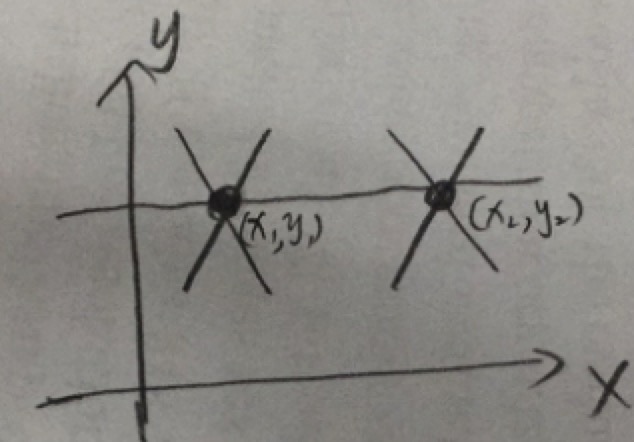 y
(x₁,y₁)
(x₂,y₂)
X